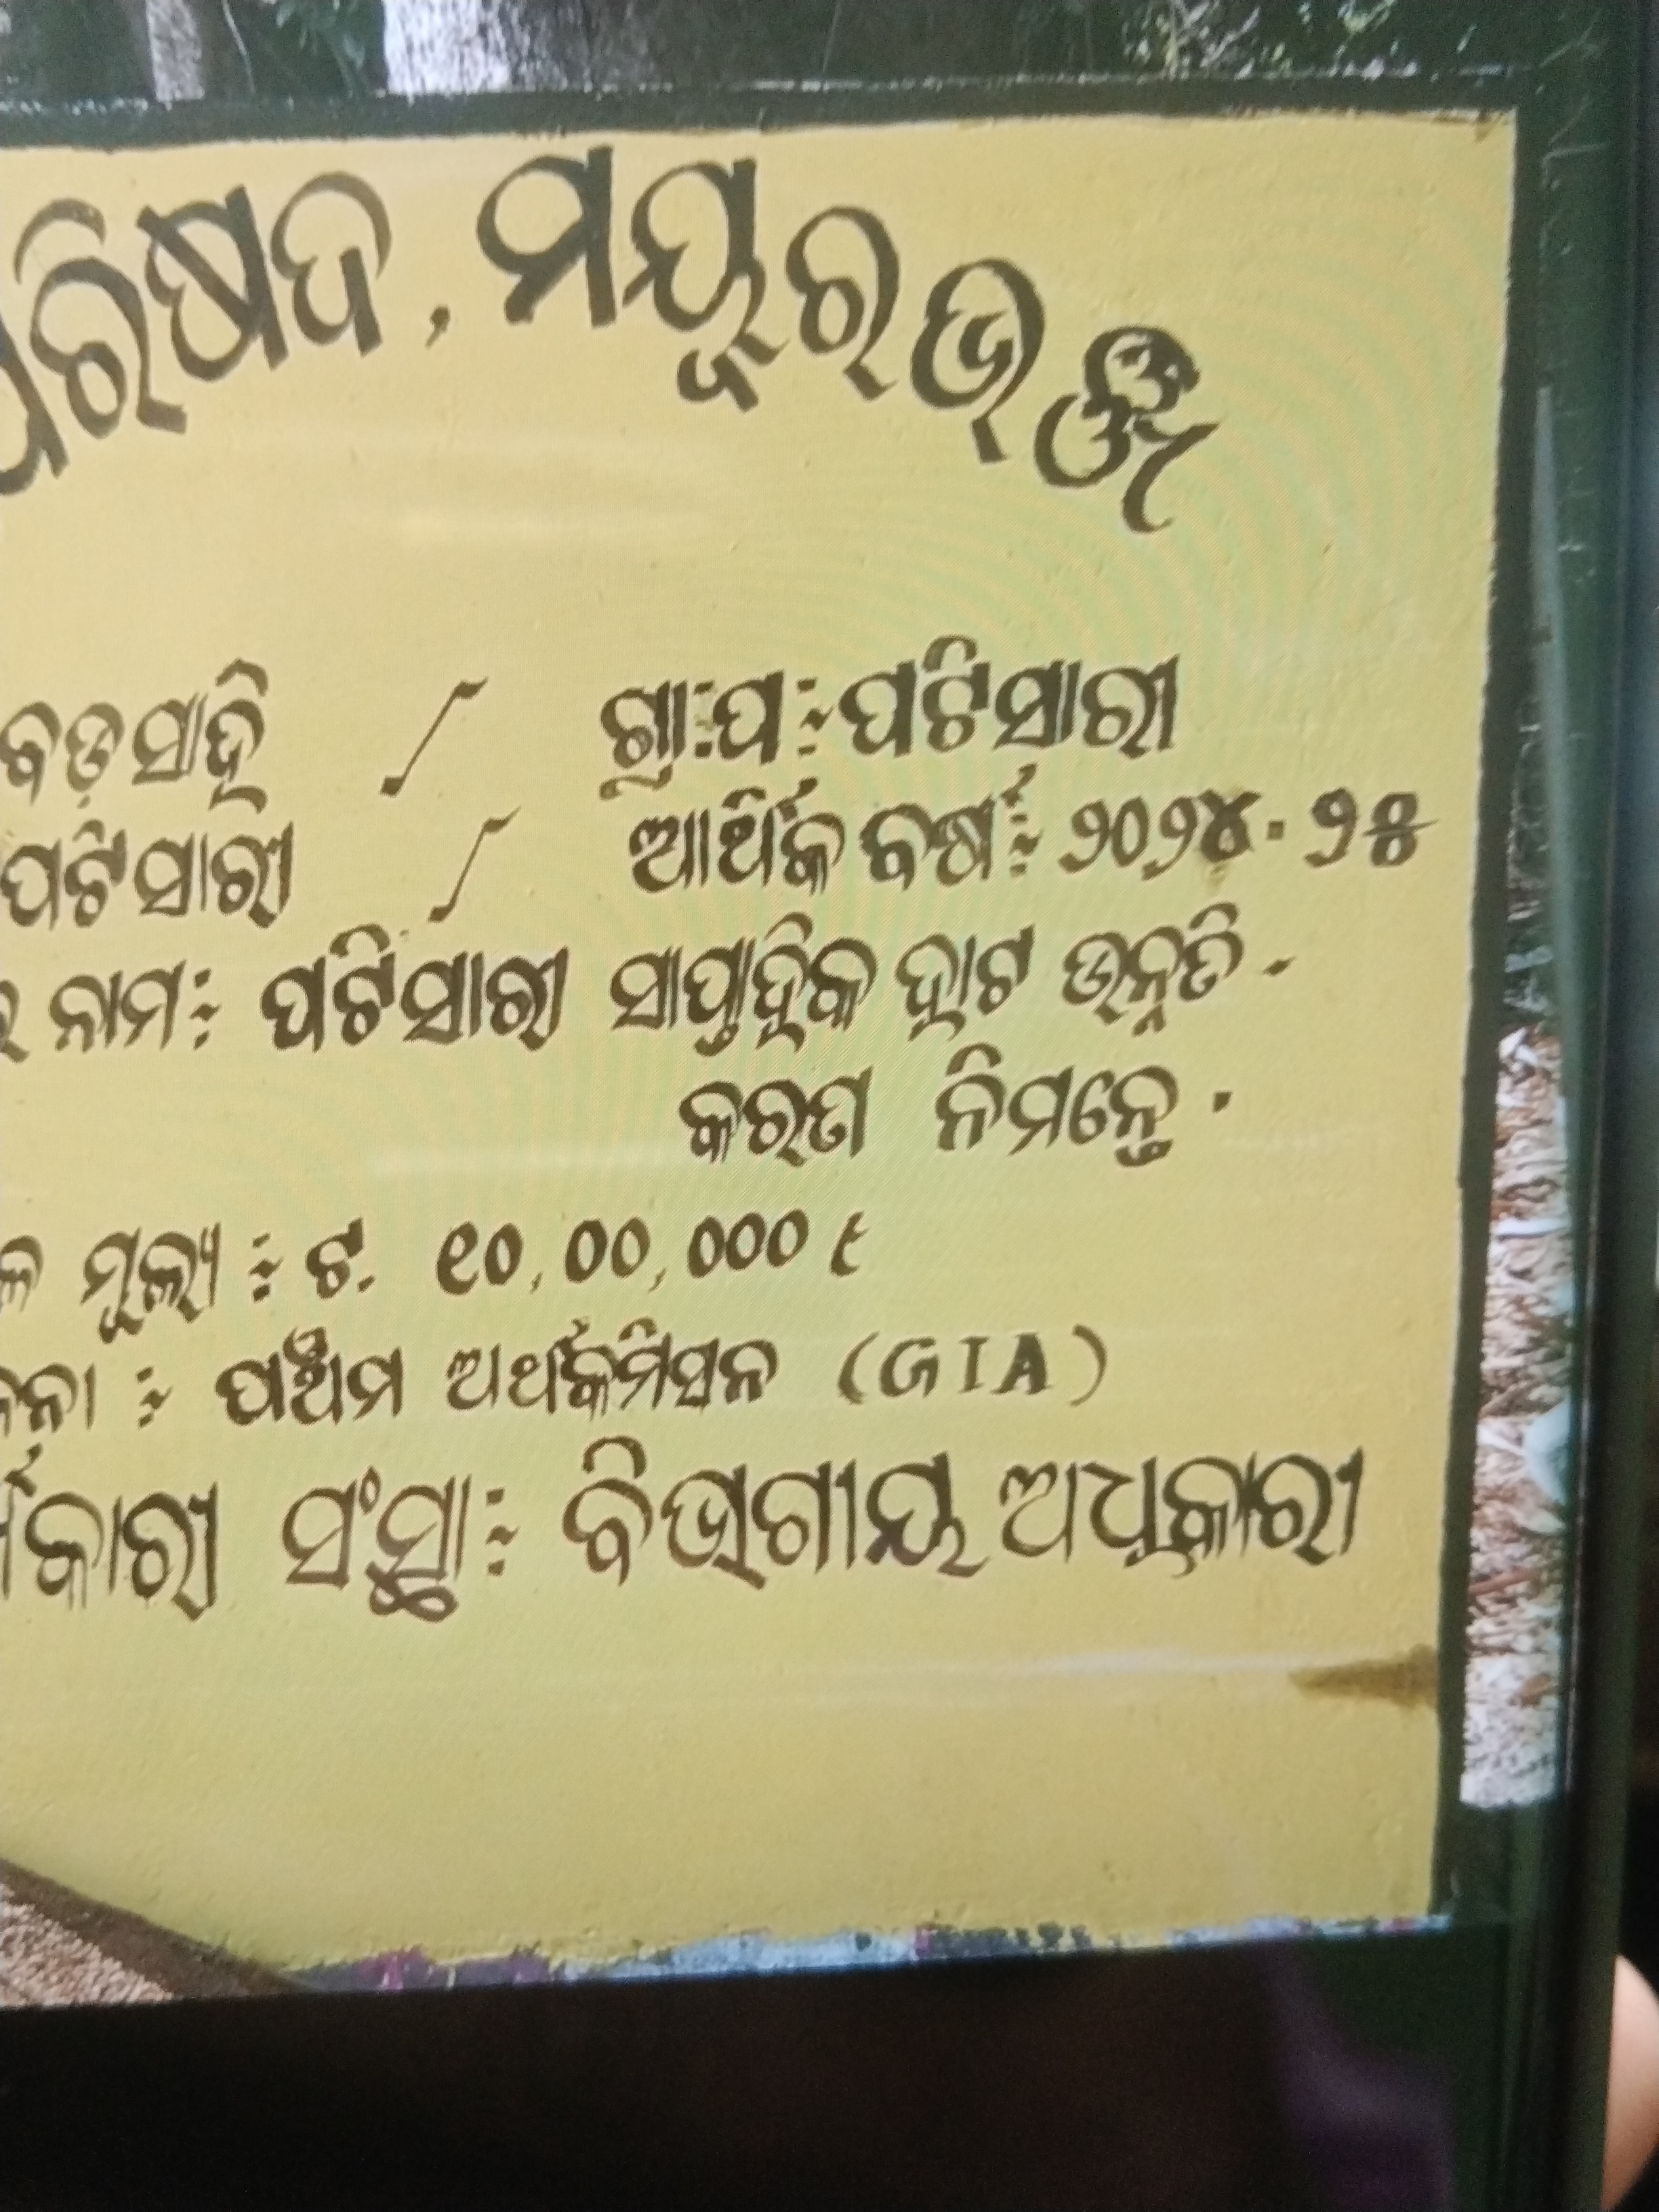 ପରିଷଦ, ମୟୂରଭଞ୍ଜ
ବଡ଼ସାହି / ଗ୍ରା:ପ:- ପଟିସାରୀ
ପଟିସାରୀ / ଆର୍ଥିକ ବର୍ଷ:- ୨୦୨୪-୨୫
ନାମ:- ପଟିସାରୀ ସାପ୍ତାହିକ ହାଟ ଉନ୍ନତି-
କରଣ ନିମନ୍ତେ.
ମୂଲ୍ୟ :- ଟ. ୧୦,୦୦,୦୦୦ ୯
:- ପଞ୍ଚମ ଅର୍ଥକମିସନ (GIA)
ସଂସ୍ଥା:- ବିଭାଗୀୟ ଅଧିକାରୀ